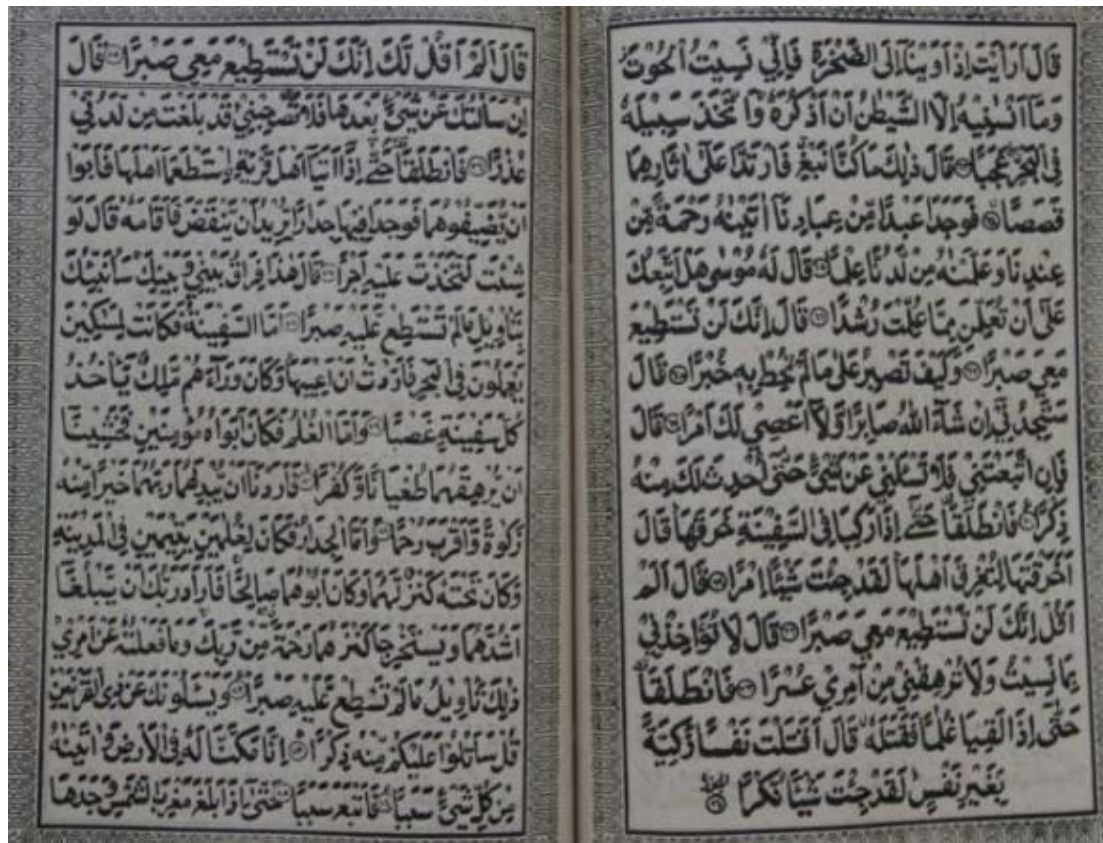 قَالَ اَرَاَيْتَ اِذْ اَوَيْنَاۤ اِلَى الصَّخْرَةِ فَاِنِّيْ نَسِيْتُ الْحُوْتَ
وَمَاۤ اَنْسٰنِيْهُ اِلَّا الشَّيْطٰنُ اَنْ اَذْكُرَهٗ وَاتَّخَذَ سَبِيْلَهٗ
فِي الْبَحْرِ عَجَبًا قَالَ ذٰلِكَ مَا كُنَّا نَبْغِ فَارْتَدَّا عَلٰۤى اٰثَارِهِمَا
قَصَصًا فَوَجَدَا عَبْدًا مِّنْ عِبَادِنَاۤ اٰتَيْنٰهُ رَحْمَةً مِّنْ
عِنْدِنَا وَعَلَّمْنٰهُ مِنْ لَّدُنَّا عِلْمًا قَالَ لَهٗ مُوْسٰى هَلْ اَتَّبِعُكَ
عَلٰۤى اَنْ تُعَلِّمَنِ مِمَّا عُلِّمْتَ رُشْدًا قَالَ اِنَّكَ لَنْ تَسْتَطِيْعَ
مَعِيَ صَبْرًا وَكَيْفَ تَصْبِرُ عَلٰى مَا لَمْ تُحِطْ بِهٖ خُبْرًا قَالَ
سَتَجِدُنِيْۤ اِنْ شَآءَ اللّٰهُ صَابِرًا وَّلَاۤ اَعْصِيْ لَكَ اَمْرًا قَالَ
فَاِنِ اتَّبَعْتَنِيْ فَلَا تَسْـَٔلْنِيْ عَنْ شَيْءٍ حَتّٰۤى اُحْدِثَ لَكَ مِنْهُ
ذِكْرًا فَانْطَلَقَا حَتّٰۤى اِذَا رَكِبَا فِي السَّفِيْنَةِ خَرَقَهَا قَالَ
اَخَرَقْتَهَا لِتُغْرِقَ اَهْلَهَا لَقَدْ جِئْتَ شَيْـًٔا اِمْرًا قَالَ اَلَمْ
اَقُلْ اِنَّكَ لَنْ تَسْتَطِيْعَ مَعِيَ صَبْرًا قَالَ لَا تُؤَاخِذْنِيْ
بِمَا نَسِيْتُ وَلَا تُرْهِقْنِيْ مِنْ اَمْرِيْ عُسْرًا فَانْطَلَقَا
حَتّٰۤى اِذَا لَقِيَا غُلٰمًا فَقَتَلَهٗ قَالَ اَقَتَلْتَ نَفْسًا زَكِيَّةًۢ
بِغَيْرِ نَفْسٍ لَقَدْ جِئْتَ شَيْـًٔا نُّكْرًا
قَالَ اَلَمْ اَقُلْ لَّكَ اِنَّكَ لَنْ تَسْتَطِيْعَ مَعِيَ صَبْرًا قَالَ
اِنْ سَاَلْتُكَ عَنْ شَيْءٍۢ بَعْدَهَا فَلَا تُصٰحِبْنِيْ قَدْ بَلَغْتَ مِنْ لَّدُنِّيْ
عُذْرًا فَانْطَلَقَا حَتّٰۤى اِذَاۤ اَتَيَاۤ اَهْلَ قَرْيَةِ ۨاسْتَطْعَمَاۤ اَهْلَهَا فَاَبَوْا
اَنْ يُّضَيِّفُوْهُمَا فَوَجَدَا فِيْهَا جِدَارًا يُّرِيْدُ اَنْ يَّنْقَضَّ فَاَقَامَهٗ قَالَ لَوْ
شِئْتَ لَتَّخَذْتَ عَلَيْهِ اَجْرًا قَالَ هٰذَا فِرَاقُ بَيْنِيْ وَبَيْنِكَ سَاُنَبِّئُكَ
بِتَاْوِيْلِ مَا لَمْ تَسْتَطِعْ عَّلَيْهِ صَبْرًا اَمَّا السَّفِيْنَةُ فَكَانَتْ لِمَسٰكِيْنَ
يَعْمَلُوْنَ فِي الْبَحْرِ فَاَرَدْتُّ اَنْ اَعِيْبَهَا وَكَانَ وَرَآءَهُمْ مَّلِكٌ يَّاْخُذُ
كُلَّ سَفِيْنَةٍ غَصْبًا وَاَمَّا الْغُلٰمُ فَكَانَ اَبَوٰهُ مُؤْمِنَيْنِ فَخَشِيْنَاۤ
اَنْ يُّرْهِقَهُمَا طُغْيَانًا وَّكُفْرًا فَاَرَدْنَاۤ اَنْ يُّبْدِلَهُمَا رَبُّهُمَا خَيْرًا مِّنْهُ
زَكٰوةً وَّاَقْرَبَ رُحْمًا وَاَمَّا الْجِدَارُ فَكَانَ لِغُلٰمَيْنِ يَتِيْمَيْنِ فِي الْمَدِيْنَةِ
وَكَانَ تَحْتَهٗ كَنْزٌ لَّهُمَا وَكَانَ اَبُوْهُمَا صَالِحًا فَاَرَادَ رَبُّكَ اَنْ يَّبْلُغَاۤ
اَشُدَّهُمَا وَيَسْتَخْرِجَا كَنْزَهُمَا رَحْمَةً مِّنْ رَّبِّكَ وَمَا فَعَلْتُهٗ عَنْ اَمْرِيْ
ذٰلِكَ تَاْوِيْلُ مَا لَمْ تَسْطِعْ عَّلَيْهِ صَبْرًا وَيَسْـَٔلُوْنَكَ عَنْ ذِي الْقَرْنَيْنِ
قُلْ سَاَتْلُوْا عَلَيْكُمْ مِّنْهُ ذِكْرًا اِنَّا مَكَّنَّا لَهٗ فِي الْاَرْضِ وَاٰتَيْنٰهُ
مِنْ كُلِّ شَيْءٍ سَبَبًا فَاَتْبَعَ سَبَبًا حَتّٰۤى اِذَا بَلَغَ مَغْرِبَ الشَّمْسِ وَجَدَهَا